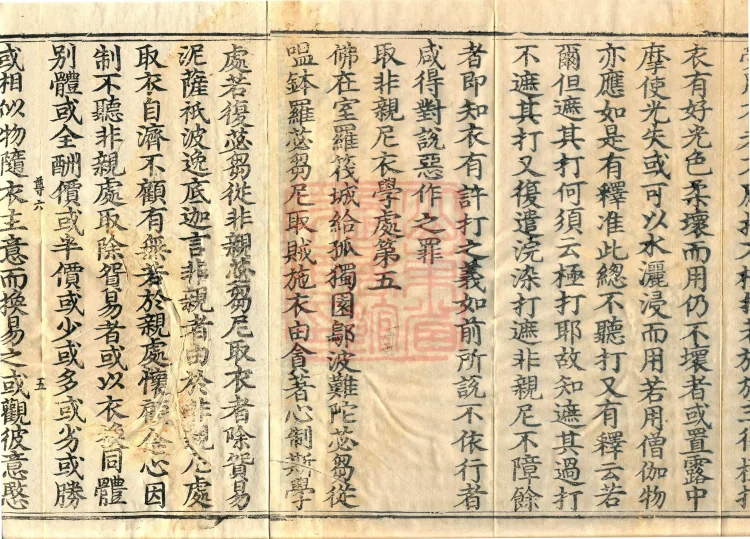 衣有好光色柔壞而用仍不壞者或置露中
摩使光失或可以水灑浸而用若用僧伽物
亦應如是有釋准此總不聽打又有釋云若
爾但遮其打何須云極打耶故知遮其過打
不遮其打又復遣浣染打遮非親尼不障餘
者即知衣有許打之義如前所說不依行者
咸得對說惡作之罪
取非親尼衣學處第五
佛在室羅筏城給孤獨園鄔波難陀苾芻從
嗢鉢羅苾芻尼取賊施衣由貪著心制斯學
處若復苾芻從非親苾芻尼取衣者除貿易
泥薩祇波逸底迦言非親者由於非親尼處
取衣自濟不顧有無若於親處懷顧念心因
制不聽非親處取除貿易者或以衣換同體
別體或全酬價或半價或少或多或劣或勝
尊六 五
或相似物隨衣主意而換易之或觀彼意愍